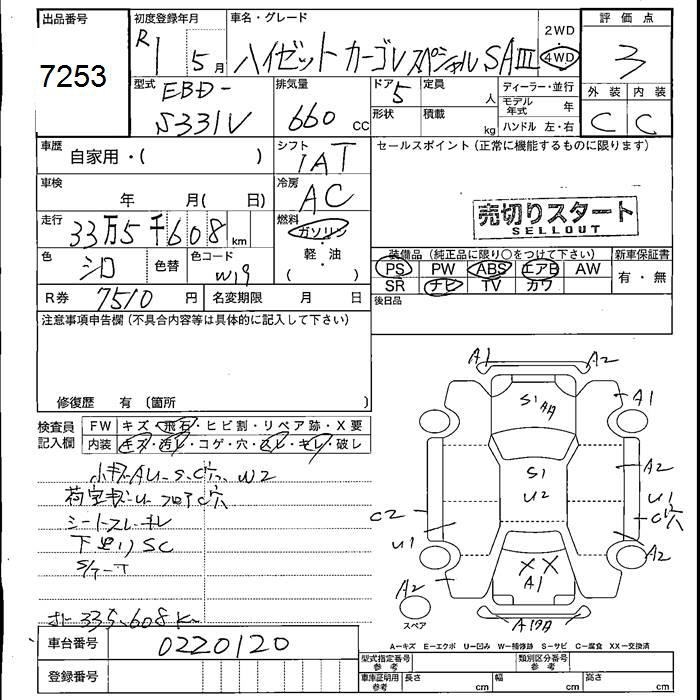 出品番号
7253
初度登録年月
R1 5月
車名・グレード
ハイゼット カーゴ スペシャル SAⅢ
2WD
4WD
評価点
3
型式
EBD-
S331V
排気量
660 cc
ドア 5
定員 人
形状
積載 kg
ディーラー・並行
モデル年式 年
ハンドル 左・右
外装 内装
C C
車歴
自家用・( )
シフト
IAT
セールスポイント(正常に機能するものに限ります)
車検
年 月( 日)
冷房
AC
売切りスタート
SELLOUT
走行
33万5千608km
燃料
ガソリン
軽・油
( )
装備品(純正品に限り○をつけて下さい)
新車保証書
PS PW ABS エアB AW
SR ナビ TV カワ
有・無
色
シロ
色替
色コード
W19
後日品
R券 7510円
名変期限 月 日
注意事項申告欄(不具合内容等は具体的に記入して下さい)
修復歴 有 〔箇所 〕
検査員記入欄
FW キズ・飛石・ヒビ割・リペア跡・X要
内装 キズ・汚レ・コゲ・穴・スレ・キレ・破レ
小キズAU-S.C穴、W2
荷室キズ-U フロアC穴
シートスレ・キレ
下廻りSC
335,608K
A1 A2
A1
S1
A2
S1
U2
U1
C穴
C2
U1
A2
XX
A1
A2
スペア
車台番号
0220120
登録番号
A-キズ E-エクボ U-凹み W-補修跡 S-サビ C-腐食 XX-交換済
型式指定番号 参考
類別区分番号 参考
車庫証明用 参考
長さ cm
幅 cm
高さ cm